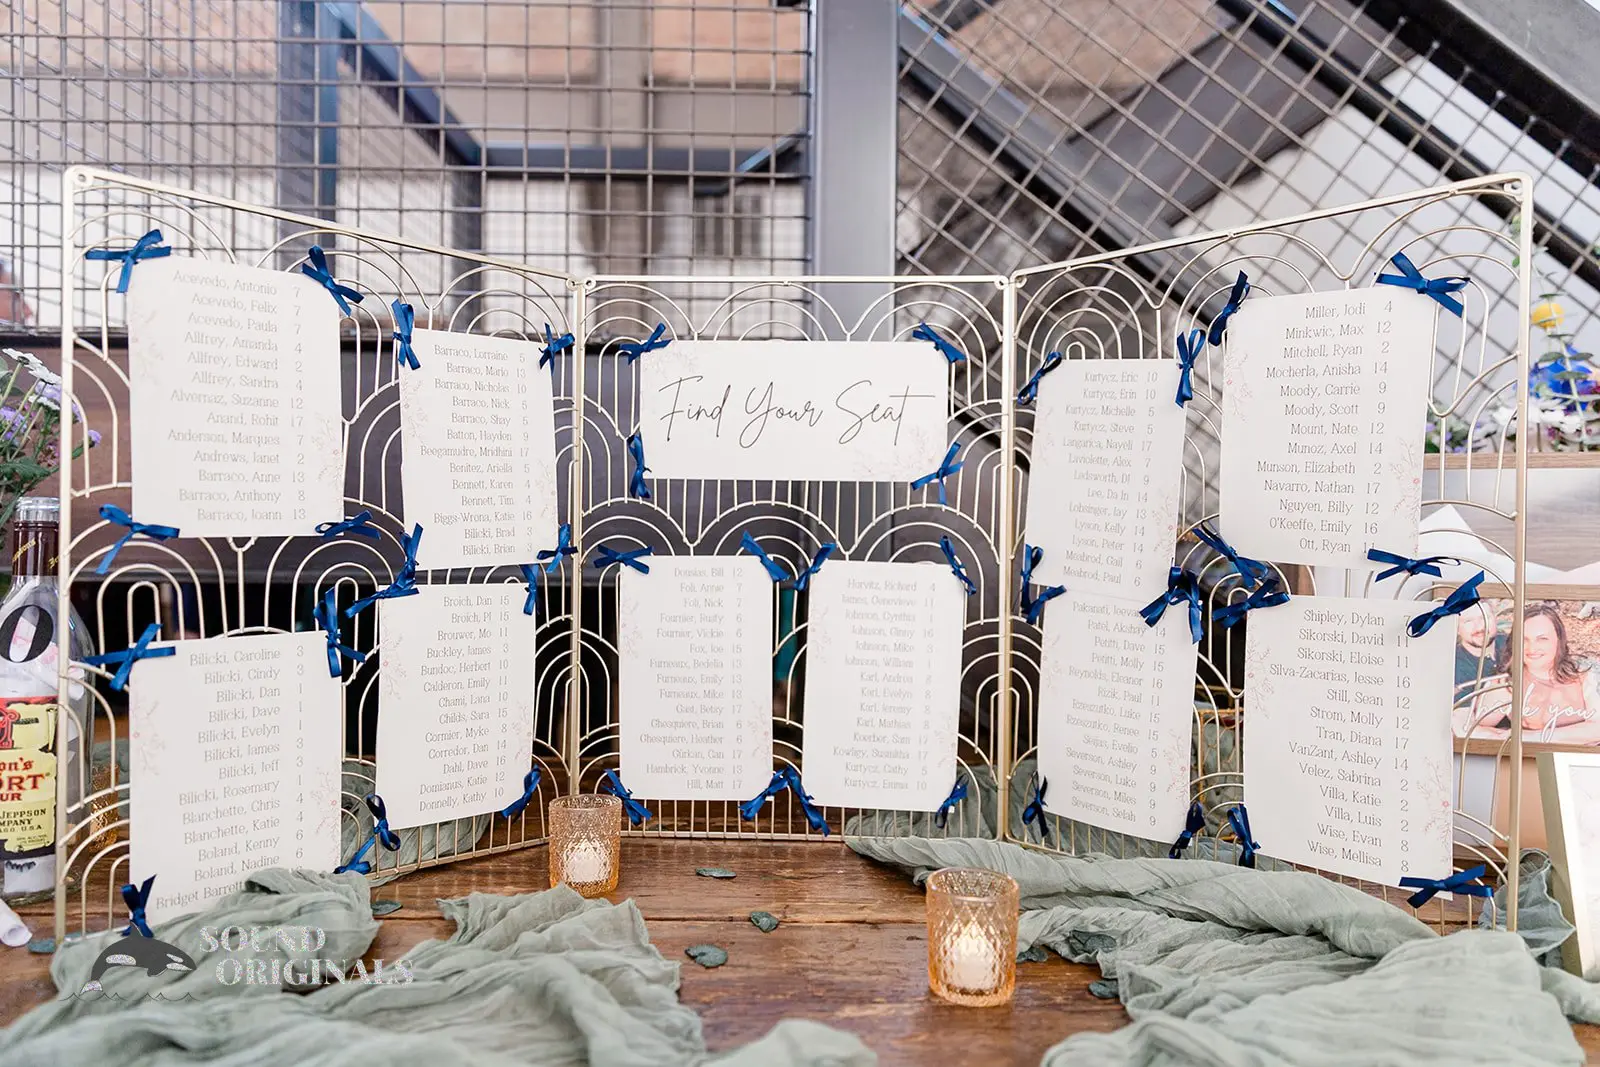 Find Your Seat
Acevedo, Antonio 7
Acevedo, Felix 7
Acevedo, Paula 7
Allfrey, Amanda 4
Allfrey, Edward 2
Allfrey, Sandra 4
Alvernaz, Suzanne 12
Anand, Rohit 17
Anderson, Marques 7
Andrews, Janet 2
Barraco, Anne 13
Barraco, Anthony 8
Barraco, Joann 13
Barraco, Lorraine 5
Barraco, Mario 13
Barraco, Nicholas 10
Barraco, Nick 5
Barraco, Shay 5
Batton, Hayden 9
Beegamudre, Mridhini 17
Benitez, Ariella 5
Bennett, Karen 4
Bennett, Tim 4
Biggs-Wrona, Katie 16
Bilicki, Brad 3
Bilicki, Brian 3
Bilicki, Caroline 3
Bilicki, Cindy 3
Bilicki, Dan 1
Bilicki, Dave 1
Bilicki, Evelyn 1
Bilicki, James 3
Bilicki, Jeff 3
Bilicki, Rosemary 1
Blanchette, Chris 4
Blanchette, Katie 4
Boland, Kenny 6
Boland, Nadine 6
Bridget
Broich, Dan 15
Broich, PJ 15
Brouwer, Mo 11
Buckley, James 3
Bundoc, Herbert 10
Calderon, Emily 11
Chami, Lana 10
Childs, Sara 15
Cormier, Myke 8
Corredor, Dan 14
Dahl, Dave 16
Domianus, Katie 12
Donnelly, Kathy 10
Dousias, Bill 12
Foli, Annie 7
Foli, Nick 7
Fournier, Rusty 6
Fournier, Vickie 6
Fox, Joe 15
Furneaux, Bedelia 13
Furneaux, Emily 13
Furneaux, Mike 13
Gast, Betsy 17
Ghesquiere, Brian 6
Ghesquiere, Heather 6
Gürkan, Can 17
Hambrick, Yvonne 13
Hill, Matt 17
Horvitz, Richard 4
James, Genevieve 11
Johnson, Cynthia 1
Johnson, Ginny 16
Johnson, Mike 3
Johnson, William 1
Karl, Andrea 8
Karl, Evelyn 8
Karl, Jeremy 8
Karl, Mathias 8
Koerber, Sam 17
Kowligy, Susmitha 17
Kurtycz, Cathy 5
Kurtycz, Emma 10
Kurtycz, Eric 10
Kurtycz, Erin 10
Kurtycz, Michelle 5
Kurtycz, Steve 5
Langarica, Nayeli 17
Laviolette, Alex 7
Ledsworth, DJ 9
Lee, Da In 14
Lobsinger, Jay 13
Lyson, Kelly 14
Lyson, Peter 14
Meabrod, Gail 6
Meabrod, Paul 6
Miller, Jodi 4
Minkwic, Max 12
Mitchell, Ryan 2
Mocherla, Anisha 14
Moody, Carrie 9
Moody, Scott 9
Mount, Nate 12
Munoz, Axel 14
Munson, Elizabeth 2
Navarro, Nathan 17
Nguyen, Billy 12
O'Keeffe, Emily 16
Ott, Ryan 11
Pakanati, Jeevan
Patel, Akshay 14
Petitti, Dave 15
Petitti, Molly 15
Reynolds, Eleanor 16
Rizik, Paul 11
Rzeszutko, Luke 15
Rzeszutko, Renee 15
Seijas, Evelio 5
Severson, Ashley 9
Severson, Luke 9
Severson, Miles 9
Severson, Selah 9
Shipley, Dylan 7
Sikorski, David 11
Sikorski, Eloise 11
Silva-Zacarias, Jesse 16
Still, Sean 12
Strom, Molly 12
Tran, Diana 17
VanZant, Ashley 14
Velez, Sabrina 2
Villa, Katie 2
Villa, Luis 2
Wise, Evan 8
Wise, Mellisa 8
Thank you
JEPPSON
COMPANY
SOUND
ORIGINALS